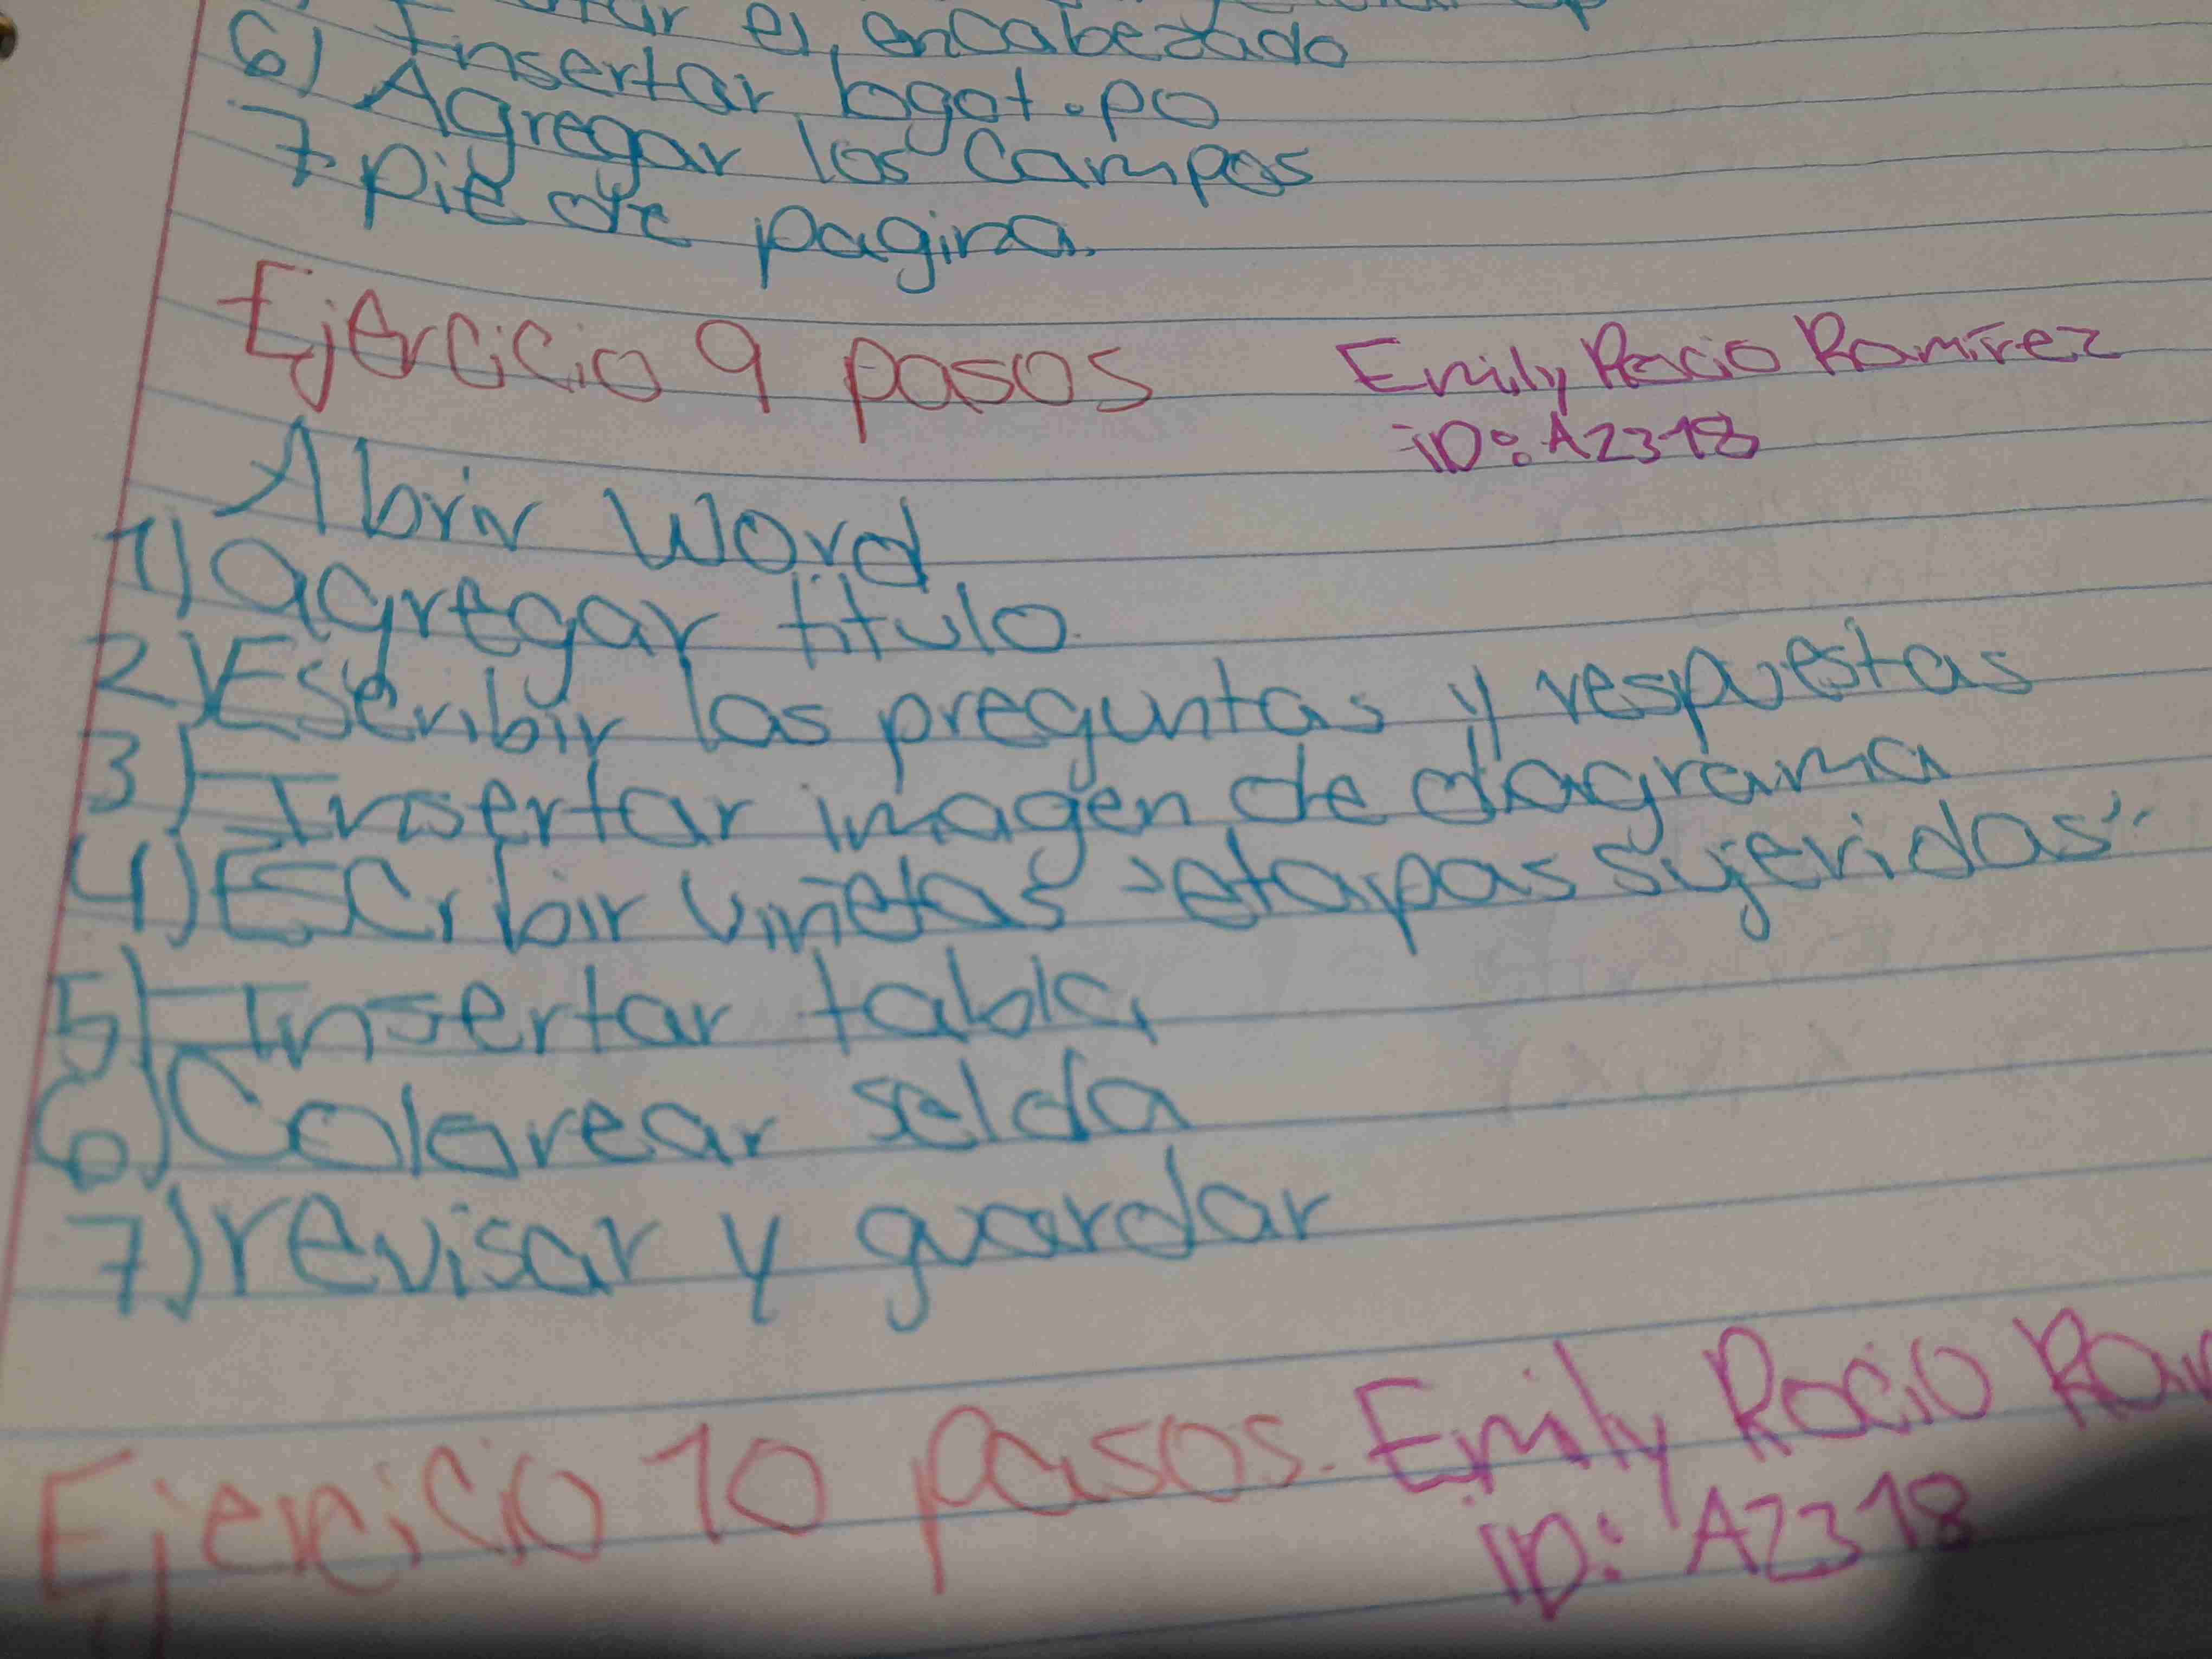 el encabezado
Insertar logot.po
6) Agregar los campos
7- pie de pagina.
Ejercicio 9 pasos
Emily Rocio Ramírez
iD: A2318
Abrir Word
1) agregar titulo.
2) Escribir las preguntas y respuestas
3) Insertar imagen de diagrama
4) Escribir viñetas "etapas sujeridas"
5) Insertar tabla
6) Colorear selda
7) revisar y guardar
Ejercicio 10 pasos. Emily Rocio
iD: A2318